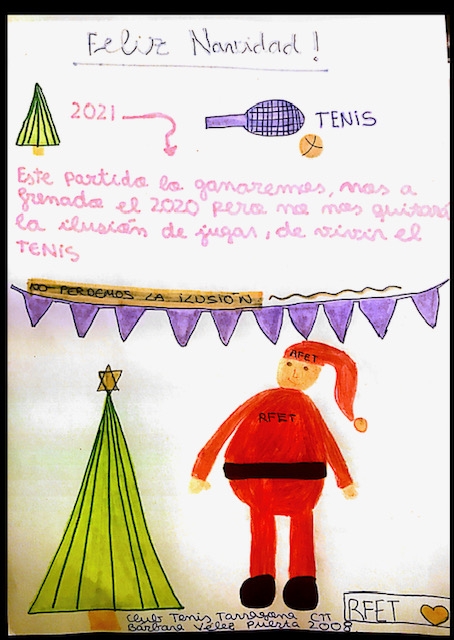 Feliz Navidad!
2021
TENIS
Este partido lo ganaremos, nos a
frenado el 2020 pero no nos quitará
la ilusión de jugar, de vivir el
TENIS
NO PERDEMOS LA ILUSIÓN
RFET
RFET
RFET
Club Tenis Tarragona CTT
Bárbara Vélez Puerta 2008